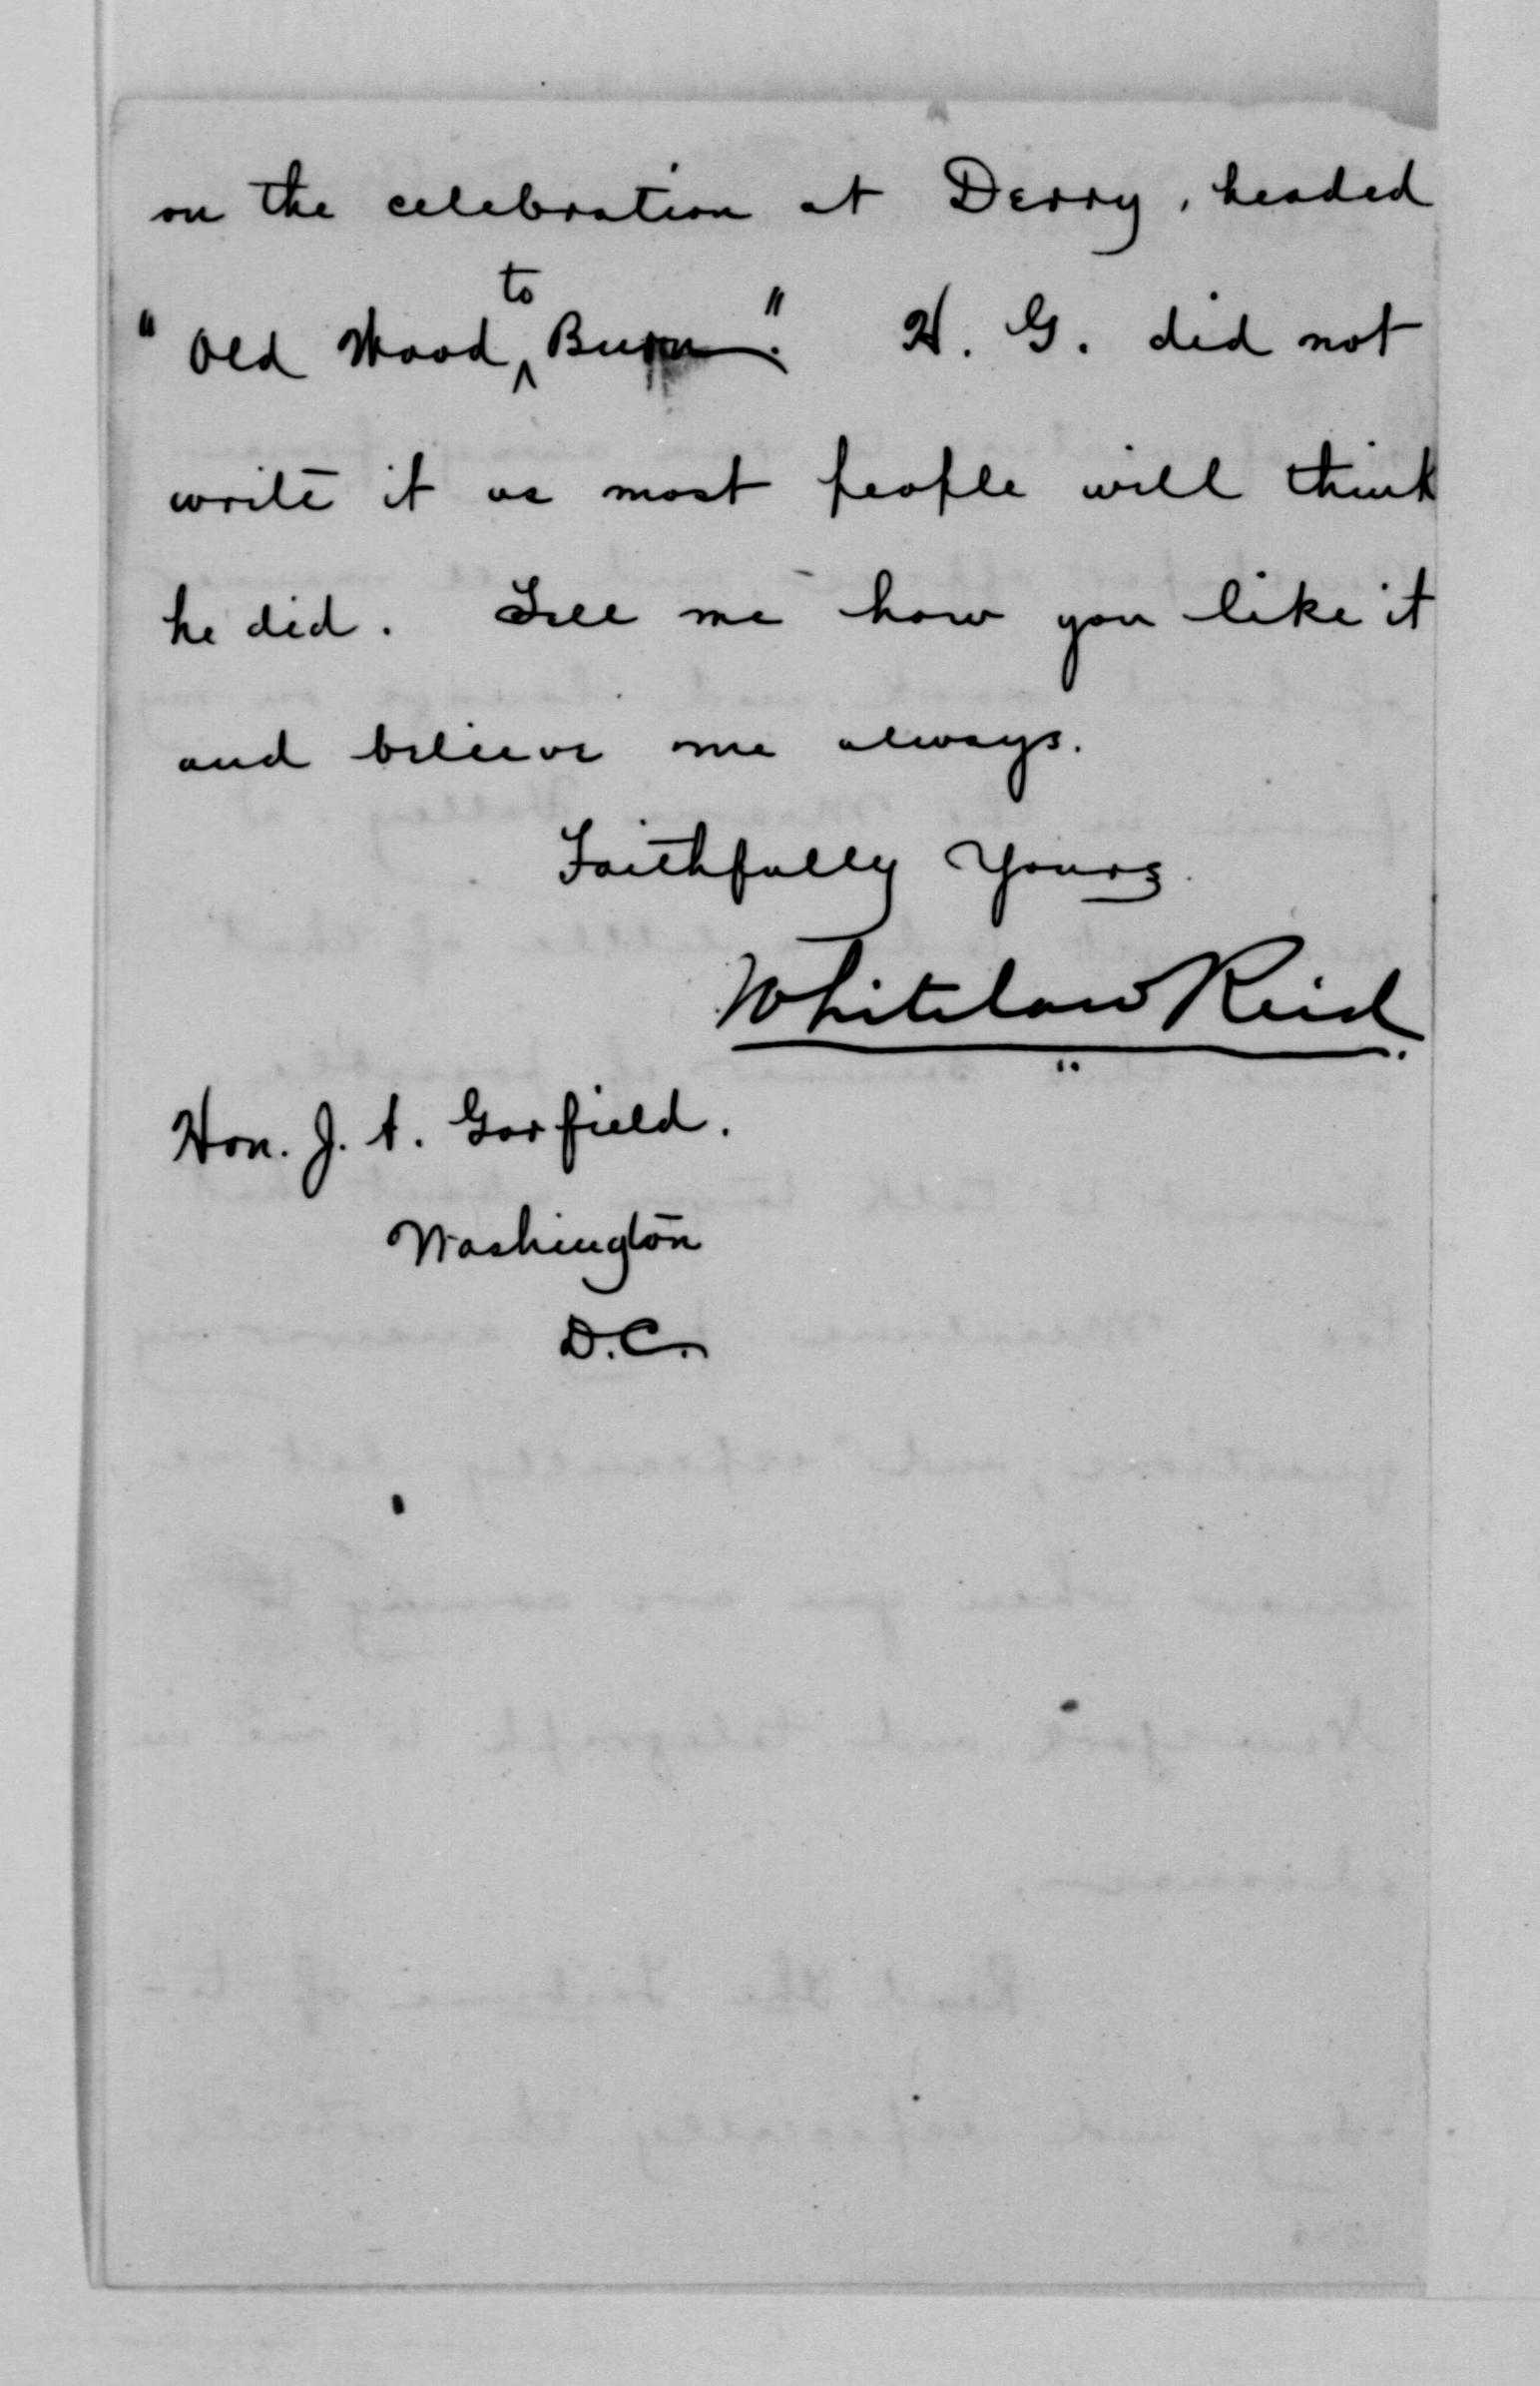 on the celebration at Derry, headed
"Old Wood to Burn." H. G. did not
write it as most people will think
he did. Tell me how you like it
and believe me always.
Faithfully Yours
Whitelaw Reid.
Hon. J. A. Garfield.
Washington
D.C.